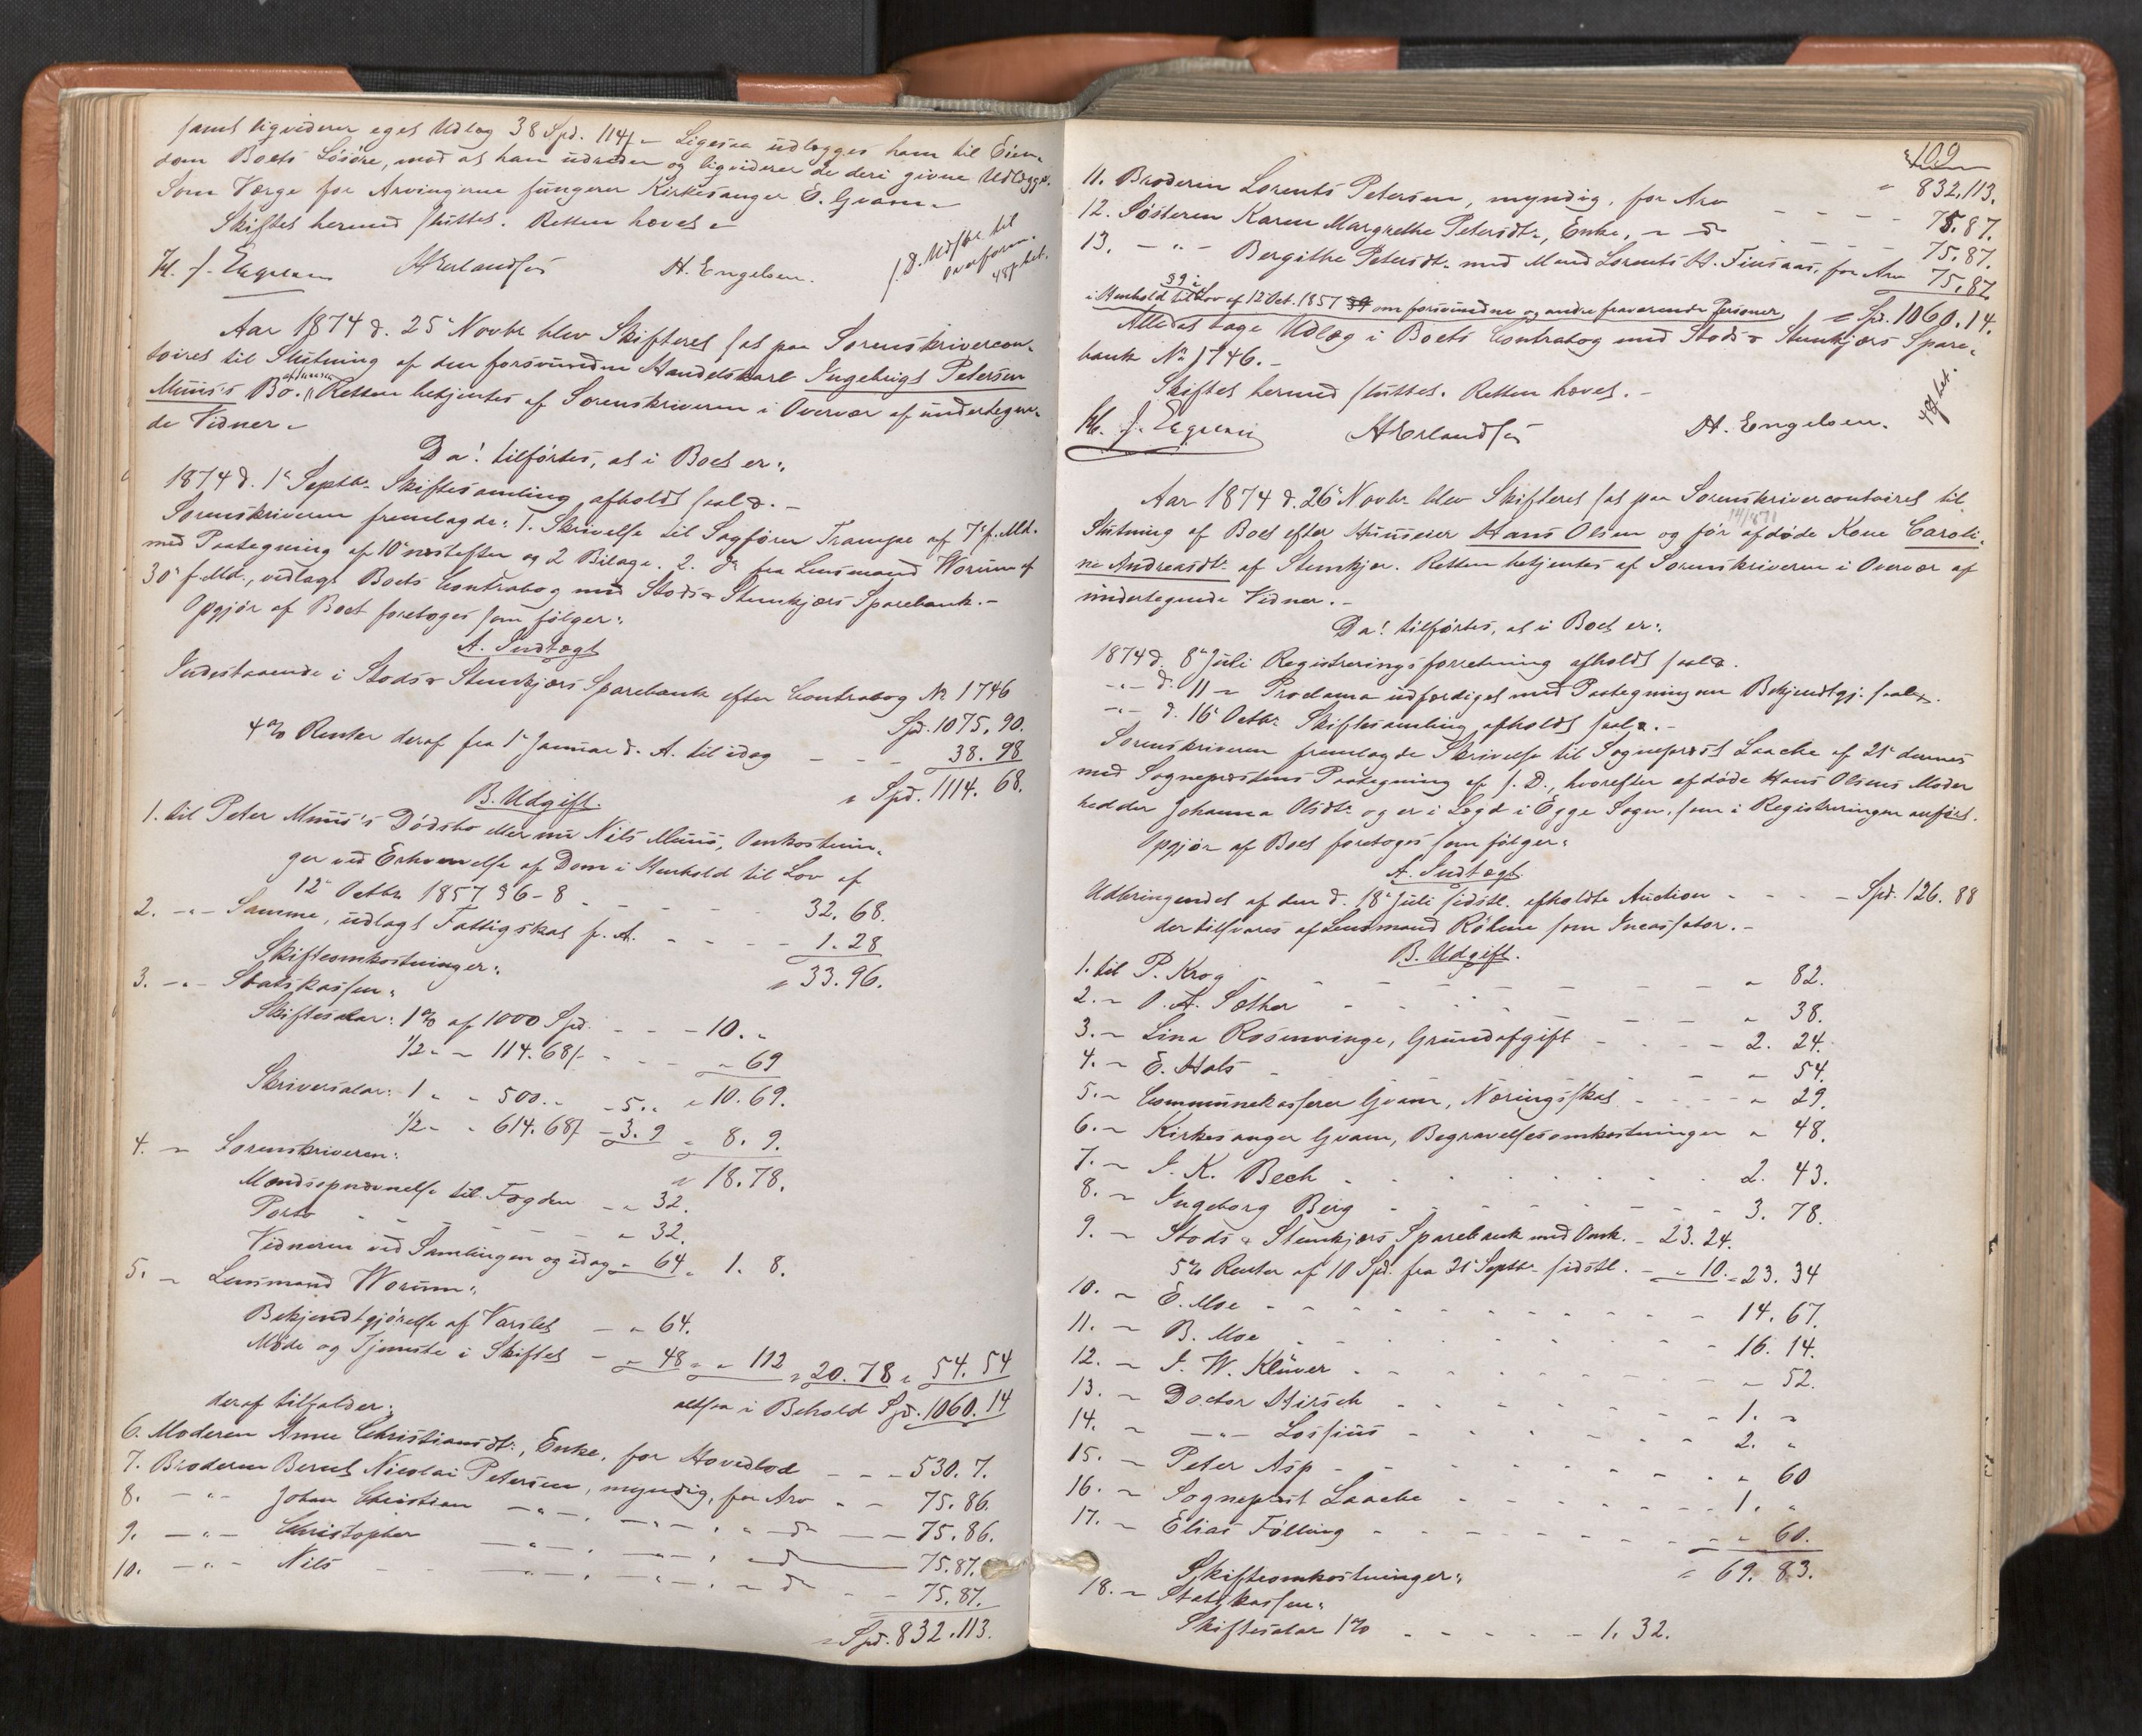 samt ligviderer eget Udlæg 38 Spd. 114 s – Ligesaa udlægges ham til Eien-
dom Boets Løsøre, mod at han udreder og ligviderer de deri givne Udlæg.
Som Værge for Arvingerne fungerer Kirkesanger E. Gvam. –
Skiftet hermed sluttet. Retten hævet. –
HErlandsen H. Engelsen.
s. D. Udskr. til
Overform.
48 s bet.
Aar 1874 d. 25de Novbr. blev Skifteret sat paa Sorenskrivercon-
toiret til Slutning af den forsvundne Handelskarl Ingebrigt Petersen
Muus's Bo. Retten betjentes af Sorenskriveren i Overvær af undertegne-
de Vidner. –
Da! tilførtes, at i Boet er:
1874 d. 1ste Septbr. Skiftesamling afholdt saal. –
Sorenskriveren fremlagde: 1. Skrivelse til Sagfører Trampe af 7de f. Md.
med Paategning af 10de næstefter og 2 Bilage. 2. do fra Lensmand Worum af
30te f. Md., vedlagt Boets Contrabog med Stods & Stenkjærs Sparebank. –
Opgjør af Boet foretoges som følger:
A. Indtægt
Indestaaende i Stods & Stenkjærs Sparebank efter Contrabog No 1746
Spd. 1075. 90.
4% Renter deraf fra 1ste Januar d. A. til idag - - - 38. 98
" Spd. 1114. 68.
B. Udgift.
1. til Peter Muus's Dødsbo eller nu Nils Muus, Omkostnin-
ger ved Erhvervelse af Dom i Henhold til Lov af
12te Octbr. 1857 § 6-8 - - - - 32. 68.
2. -"- Samme, udlagt Fattigskat f. A. - - - - 1. 28
" 33. 96.
Skifteomkostninger:
3. -"- Statskassen:
Skiftesalær: 1% af 1000 Spd. - - - 10. "
1/2 " " 114. 68 s - - - " 69
" 10. 69.
Skriversalær: 1 " " 500. " - 5. "
1/2 " " 614. 68 s - 3. 9 " 8. 9.
" 18. 78.
4. " Sorenskriveren:
Mændsopnævnelse til Fogden - " 32.
Porto - - - - " 32.
Vidnerne ved Samlingen og idag " 64 " 1. 8.
5. " Lensmand Worum:
Bekjendtgjørelse af Varslet - " 64.
Møde og Tjeneste i Skiftet - " 48 " " 112 " 20. 78 " 54. 54
altsaa i Behold Spd. 1060. 14
deraf tilfalder:
6. Moderen Anne Christiansdtr., Enke, for Hovedlod - - - 530. 7.
7. Broderen Bernt Nicolai Petersen, myndig, for Arv - - 75. 86.
8. -"- Johan Christian -"-, -"-, " do - - 75. 86.
9. -"- Christopher -"-, -"-, " do - 75. 87.
10. -"- Nils - - -"-, -"-, " do - - 75. 87.
" Spd. 832. 113.
109
" 832. 113.
11. Broderen Lorents Petersen, myndig, for Arv - - - - 75. 87.
12. Søsteren Karen Margrethe Petersdtr., Enke, " do - - - 75. 87.
13. -"- Bergithe Petersdtr. med Mand Lorents H. Finsaas, for Arv 75. 87
" Spd. 1060. 14.
i Henhold til Lov af 12 Oct. 1857 om forsvundne og andre fraværende Personer
Alle at tage Udlæg i Boets Contrabog med Stods & Stenkjærs Spare-
bank No 1746. –
Skiftet hermed sluttet. Retten hævet. –
HErlandsen H. Engelsen.
48 s bet.
Aar 1874 d. 26de Novbr. blev Skifteret sat paa Sorenskrivercontoiret til
Slutning af Boet efter Huuseier Hans Olsen og før afdøde Kone Caroli-
ne Andreasdtr. af Stenkjær. Retten betjentes af Sorenskriveren i Overvær af
undertegnede Vidner. –
Da! tilførtes, at i Boet er:
1874 d. 8de Juli Registreringsforretning afholdt saal.
-"- d. 11 " Proclama udfærdiget med Paategning om Bekjendtgj. saal.
-"- d. 16de Octbr. Skiftesamling afholdt saal. –
Sorenskriveren fremlagde Skrivelse til Sogneprest Laache af 25de dennes
med Sognepræstens Paategning af s. D., hvorefter afdøde Hans Olsens Moder
hedder Johanna Olsdtr. og er i Lægd i Egge Sogn, som i Registreringen anført.
Opgjør af Boet foretoges som følger:
A. Indtægt
Udbringendet af den d. 18de Juli sidstl. afholdte Auction - - - - Spd. 126. 88
der tilsvares af Lensmand Røhne som Incassator. –
B. Udgift.
1. til P. Krog - - - - - - " 82.
2. " O. A. Sæther - - - - - " 38.
3. " Lina Rosenvinge, Grundafgift - - - - 2. 24.
4. " E. Hals - - - - - " 54.
5. " Communekasserer Gvam, Næringsskat - - - - " 29.
6. " Kirkesanger Gvam, Begravelsesomkostninger " 48.
7. " I. K. Bech - - - - - - 2. 43.
8. " Ingeborg Berg - - - - - - 3. 78.
9. " Stods & Stenkjærs Sparebank med Omk. - 23. 24.
5% Renter af 10 Spd. fra 25 Septbr. sidstl. - " 10. " 23. 34
10. " E. Moe - - - - - - - 14. 67.
11. " B. Moe - - - - - - - 16. 14.
12. " I. W. Klüver - - - - - - " 52.
13. " Doctor Hirsch - - - - - - 1. "
14. " -"- Lossius - - - - - - 2. "
15. " Peter Asp - - - - - - " 60
16. " Sogneprest Laache - - - - - 1. "
17. " Elias Følling - - - - - - " 60.
" 69. 83.
Skifteomkostninger:
18. " Statskassen:
Skiftesalær 1% - - - - - 1. 32.